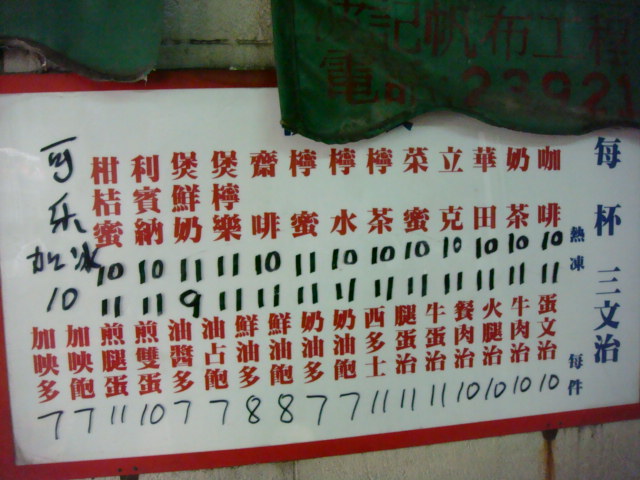 記帆布工程
電 23921
每杯
熱 凍
咖啡 10 11
奶茶 10 11
華田 10 11
立克 10 11
菜蜜 10 11
檸茶 10 11
檸水 10 11
檸蜜 11 11
齋啡 10 11
煲檸樂 11 11
煲鮮奶 11 9
利賓納 10 11
柑桔蜜 10 11
可乐加冰 10
三文治
每件
蛋文治 10
牛肉治 10
火腿治 10
餐肉治 10
牛蛋治 11
腿蛋治 11
西多士 11
奶油飽 7
奶油多 7
鮮油飽 8
鮮油多 8
油占飽 7
油醬多 7
煎雙蛋 10
煎腿蛋 11
加映飽 7
加映多 7